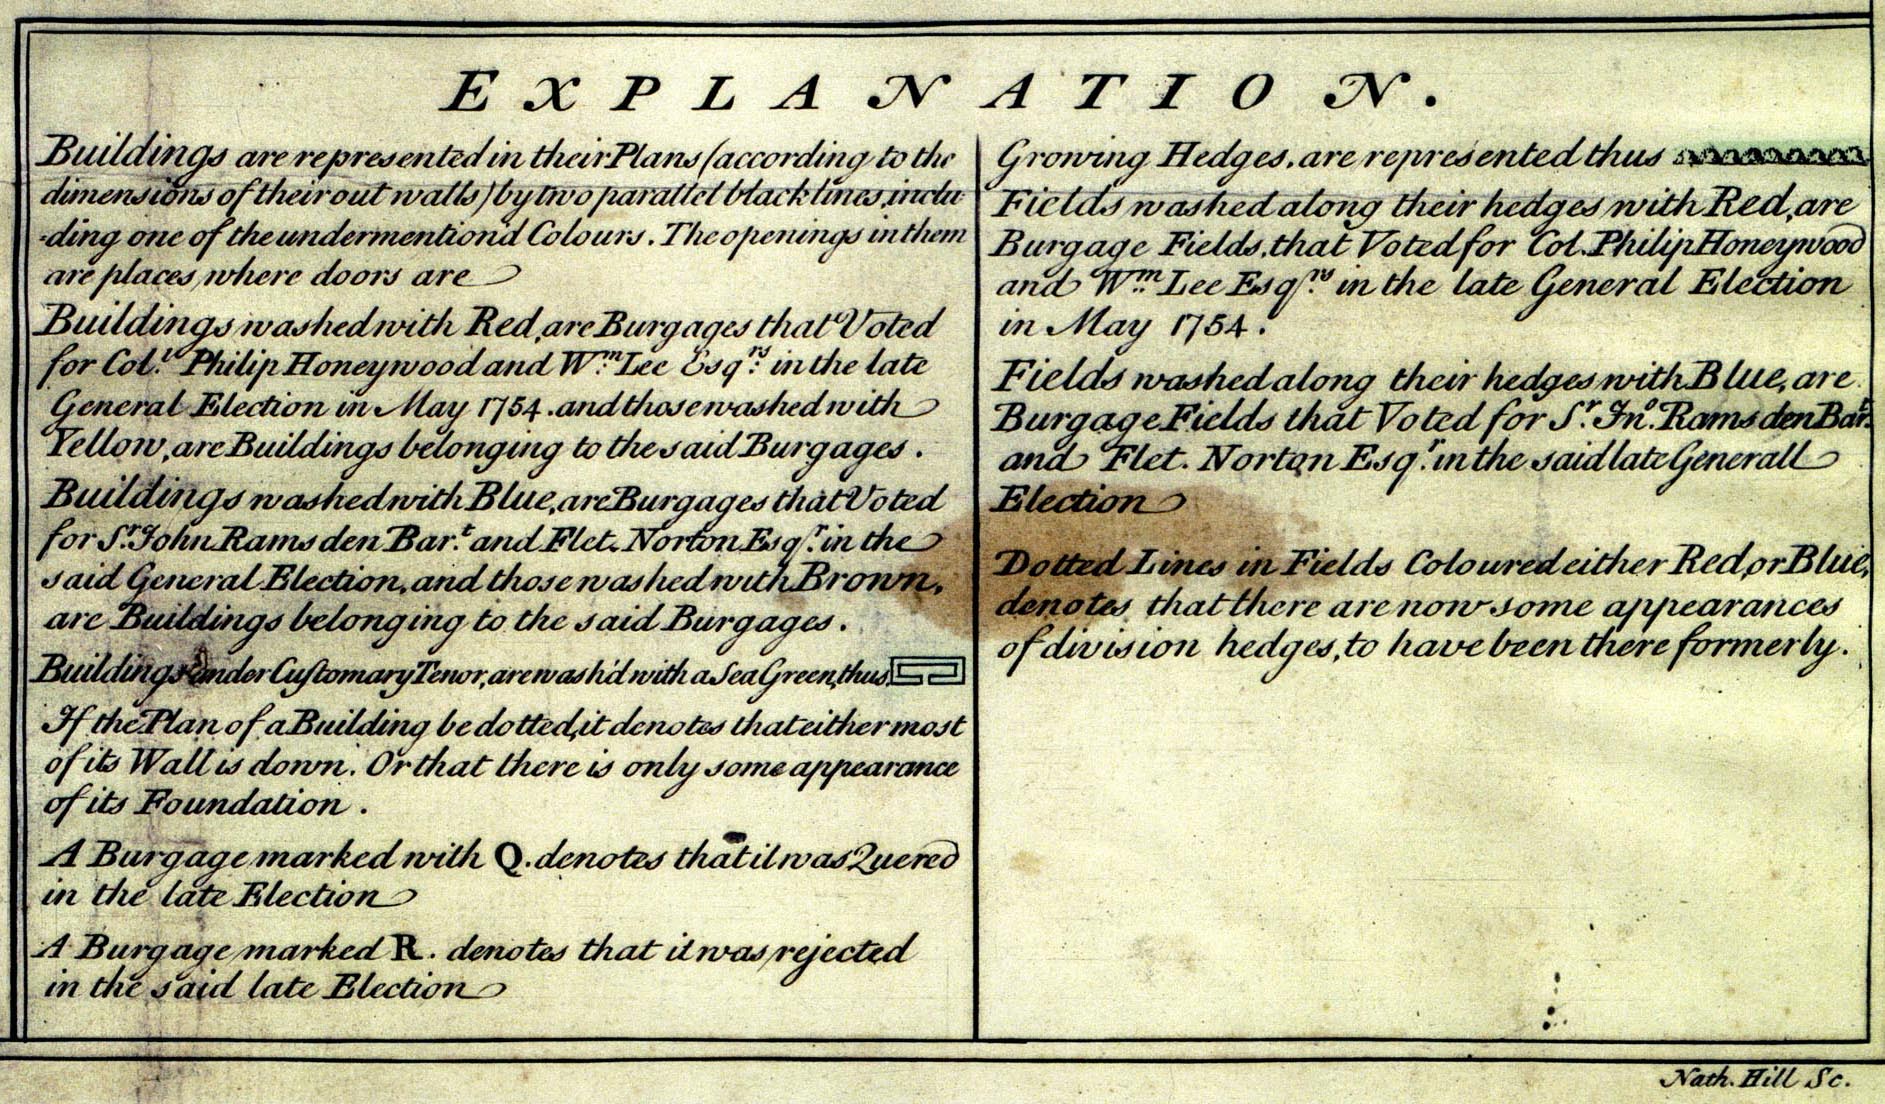 EXPLANATION.
Buildings are represented in their Plans (according to the
dimensions of their out walls) by two parallel black lines, inclu-
-ding one of the undermention'd Colours. The openings in them
are places, where doors are
Buildings washed with Red, are Burgages that Voted
for Col.l Philip Honeywood and Wm. Lee Esqrs. in the late
General Election in May 1754. and those washed with
Yellow, are Buildings belonging to the said Burgages.
Buildings washed with Blue, are Burgages that Voted
for Sr. John Ramsden Bar.t and Flet. Norton Esqr. in the
said General Election, and those washed with Brown,
are Buildings belonging to the said Burgages.
Buildings under Customary Tenor, are wash'd with a Sea Green, thus,
If the Plan of a Building be dotted, it denotes that either most
of its Wall is down. Or that there is only some appearance
of its Foundation.
A Burgage marked with Q. denotes that it was Quered
in the late Election
A Burgage marked R. denotes that it was rejected
in the said late Election
Growing Hedges, are represented thus
Fields washed along their hedges with Red, are
Burgage Fields, that Voted for Col. Philip Honeywood
and Wm. Lee Esqrs. in the late General Election
in May 1754.
Fields washed along their hedges with Blue, are
Burgage Fields that Voted for Sr. Jno. Ramsden Bart.
and Flet. Norton Esqr. in the said late Generall
Election
Dotted Lines in Fields Coloured either Red, or Blue,
denotes that there are now some appearances
of division hedges, to have been there formerly.
Nath. Hill Sc.